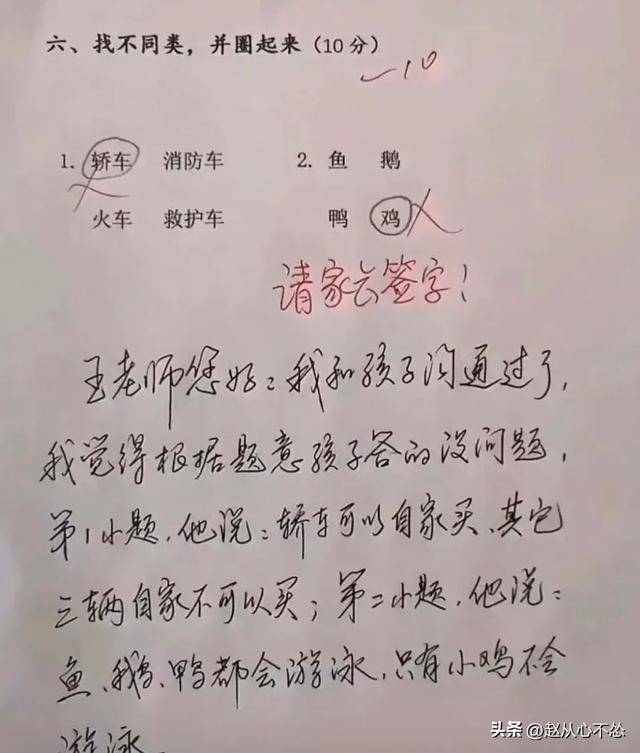 六、找不同类，并圈起来（10分）
-10
1. 轿车 消防车 2. 鱼 鹅
火车 救护车 鸭 鸡
请家长签字！
王老师您好：我和孩子沟通过了，
我觉得根据题意孩子答的没问题，
第1小题，他说：轿车可以自家买、其它
三辆自家不可以买；第二小题，他说：
鱼、鹅、鸭都会游泳，只有小鸡不会
游泳
头条 @赵从心不怂